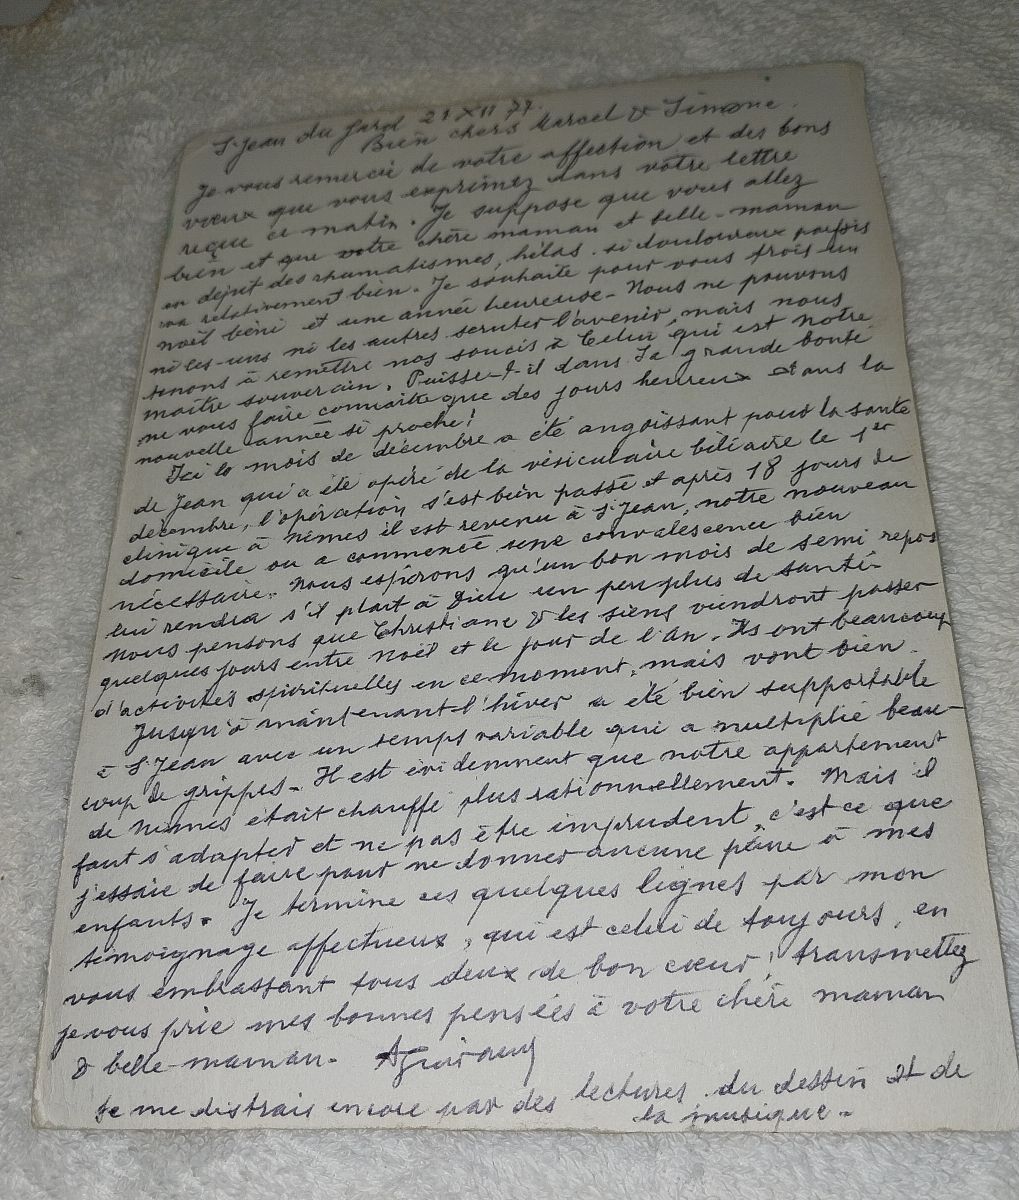 St Jean du Gard 21 XII 77.
Bien chers Marcel & Simone.
Je vous remercie de votre affection et des bons
vœux que vous exprimez dans votre lettre
reçue ce matin. Je suppose que vous allez
bien et que votre chère maman et belle-maman
en dépit des rhumatismes, hélas, si douloureux parfois
va relativement bien. Je souhaite pour vous trois un
noël béni et une année heureuse - Nous ne pouvons
ni les uns ni les autres scruter l'avenir, mais nous
tenons à remettre nos soucis à Celui qui est notre
maître souverain. Puisse-t-il dans Sa grande bonté
ne vous faire connaître que des jours heureux dans la
nouvelle année si proche!
Ici le mois de décembre a été angoissant pour la santé
de Jean qui a été opéré de la vésiculaire biliaire le 1er
décembre, l'opération s'est bien passé et après 18 jours de
clinique à Nîmes il est revenu à St Jean, notre nouveau
domicile ou a commencé une convalescence bien
nécessaire. Nous espérons qu'un bon mois de semi repos
lui rendra s'il plait à Dieu un peu plus de santé.
Nous pensons que Christiane & les siens viendront passer
quelques jours entre Noël et le jour de l'an. Ils ont beaucoup
d'activités spirituelles en ce moment, mais vont bien.
Jusqu'à maintenant l'hiver a été bien supportable
à St Jean avec un temps variable qui a multiplié beau-
coup de grippes. Il est évidemment que notre appartement
de Nîmes était chauffé plus rationnellement. Mais il
faut s'adapter et ne pas être imprudent, c'est ce que
j'essaie de faire pour ne donner aucune peine à mes
enfants. Je termine ces quelques lignes par mon
témoignage affectueux, qui est celui de toujours, en
vous embrassant tous deux de bon cœur, transmettez
je vous prie mes bonnes pensées à votre chère maman
& belle-maman.
Je me distrais encore par des lectures du dessin et de
la musique.